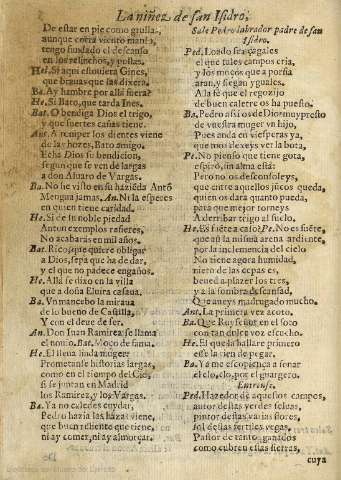 La niñez de san Isidro,
De estar en pie como grulla,
aunque corra viento mansa,
tengo fundado el descanso
en los relinchos, y
He. Si aqui estouiera Gines,
que brauas que las dixera.
Ba. Ay hambre por allà fuera?
He. Si Bato, que tarda Ines.
Bat. O bendiga Dios el trigo,
y que fuertes cañas tiene.
Ant. A romper los dientes viene
de las hozes, Bato amigo.
Echa Dios su bendicion,
segun que se ven de largas
a don Aluaro de Vargas.
Ba. No he visto en su haziẽda Antõ
Mengua jamas, An. Ni la esperes
en quien tiene caridad.
He. Si de su noble piedad
Anton exemplos refieres,
No acabarás en mil años.
Bat. Rico que quiere obligar
a Dios, sepa que ha de dar,
y el que no padece engaños.
He. Allà se dixo en la villa
que a doña Eluira casaua.
Ba. Vn mancebo la miraua
de lo bueno de Castilla,
Y con el deue de ser.
An. Don Iuan Ramirez se llama
el nouio. Bat. Moço de fama.
He. El lleua linda muger:
Prometanse historias largas,
como en el tiempo del Cid,
si se juntan en Madrid
los Ramirez, y los Vargas.
Ba. Ya no caledes cuydar,
Pedro hazia las hazas viene,
que buen aliento que tiene,
ni ay comer, ni ay almorçar.
Sale Pedro labrador padre de san
Isidro.
Ped. Loado sea çagales
el que tales campos cria,
y los moços que a porfia
aran, y siegan yguales.
A la fè que el regozijo
de buen caletre os ha puesto.
Ba. Pedro assi os dè Dios muy presto
de vuestra muger vn hijo,
Pues anda en visperas ya,
que nos dexeys ver la bota,
Pe. No pienso que tiene gota,
espirò, sin alma està:
Pero no os desconsoleys,
que entre aquellos jũcos queda,
quien os darà quanto pueda,
para que mejor torneys
A derribar trigo al suelo.
He. Es suete a caso? Pe. No es suete,
que en la misma arena ardiente,
por la inclemencia del cielo
No tiene agora humidad,
nieto de las cepas es,
bened a plazer los tres,
y a la sombra descansad,
Que aueys madrugado mucho.
Ant. La primera vez acoto.
Ba. Que Ruyseñor en el soto
con tan dulce voz escucho.
He. El que la hallare primero
esse la tien de pegar.
Ba. Ya me escopiença a sonar
el clo, clo, por el guarguero.
Entrense.
Ped. Hazedor de aquestos campos,
autor destas verdes seluas,
pintor destas varias flores,
sol destas fertiles vegas,
Pastor de tanto ganados
como cubren essas sierras,
cuya